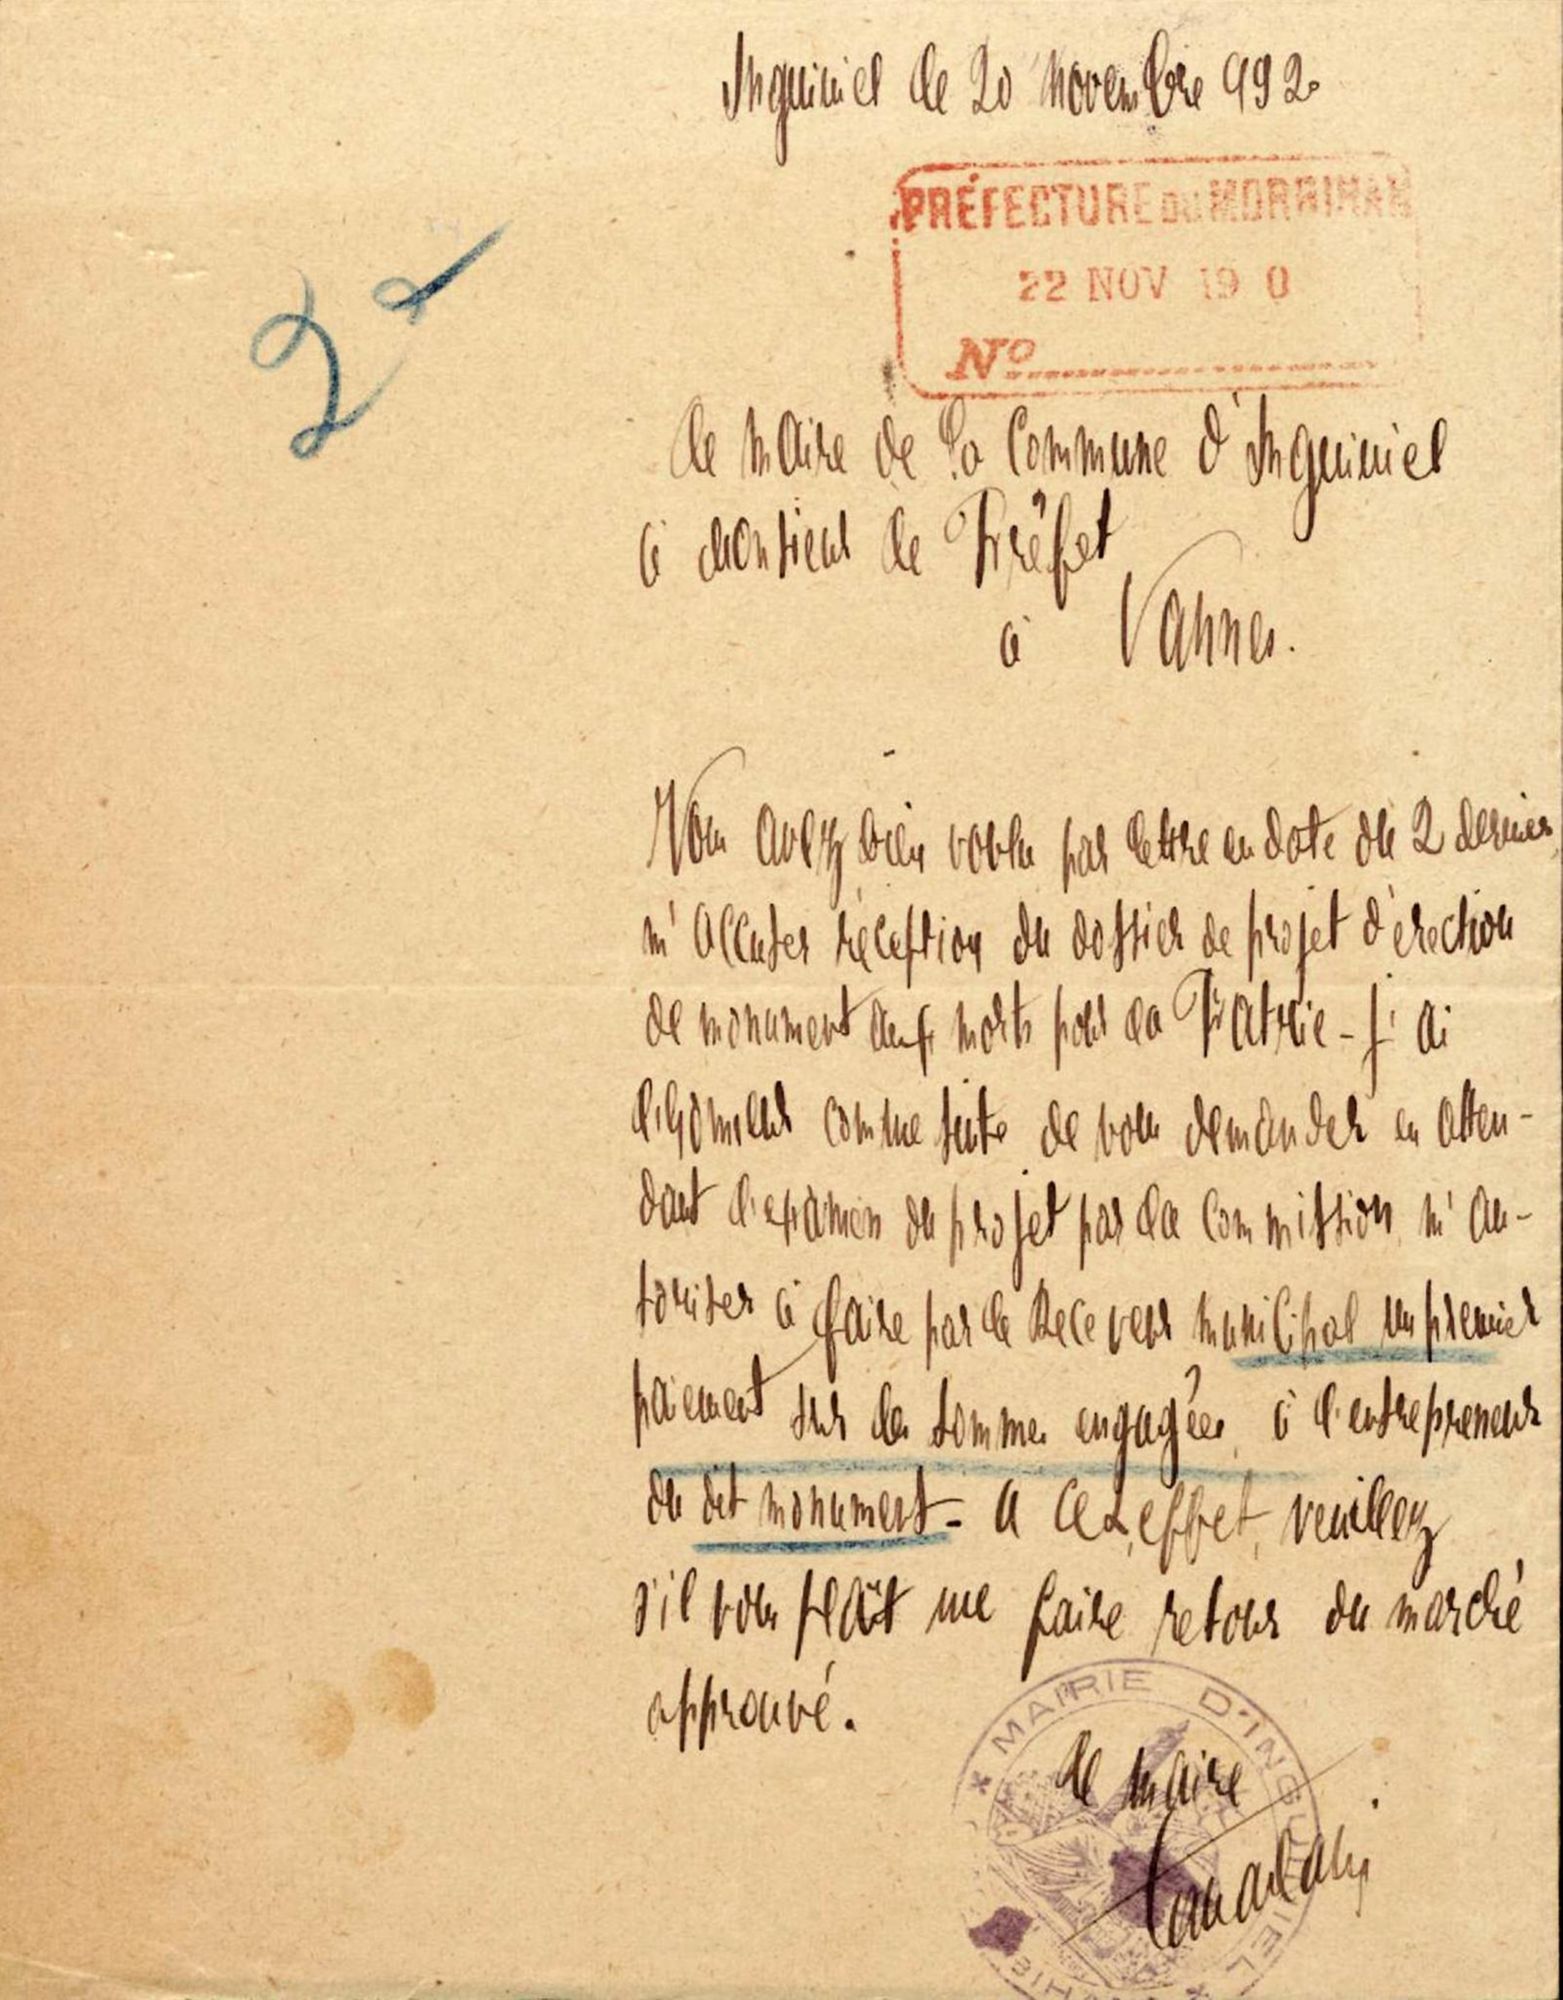 Inguiniel le 20 Novembre 1920
PRÉFECTURE DU MORBIHAN
22 NOV 19 0
2 d
Nº
Le Maire de la Commune d'Inguiniel
à Monsieur le Préfet
à Vannes.
Vous avez bien voulu par lettre en date du 2 dernier,
m'accuser réception du dossier de projet d'érection
de monument aux morts pour la Patrie - J'ai
l'honneur comme suite de vous demander en atten-
dant l'examen du projet par la Commission, m'au-
toriser à faire par le Receveur municipal un premier
paiement sur les sommes engagées, à l'entrepreneur
du dit monument - A cet effet, veuillez
s'il vous plaît me faire retour du marché
approuvé.
MAIRIE D'INGUINIEL
Le Maire